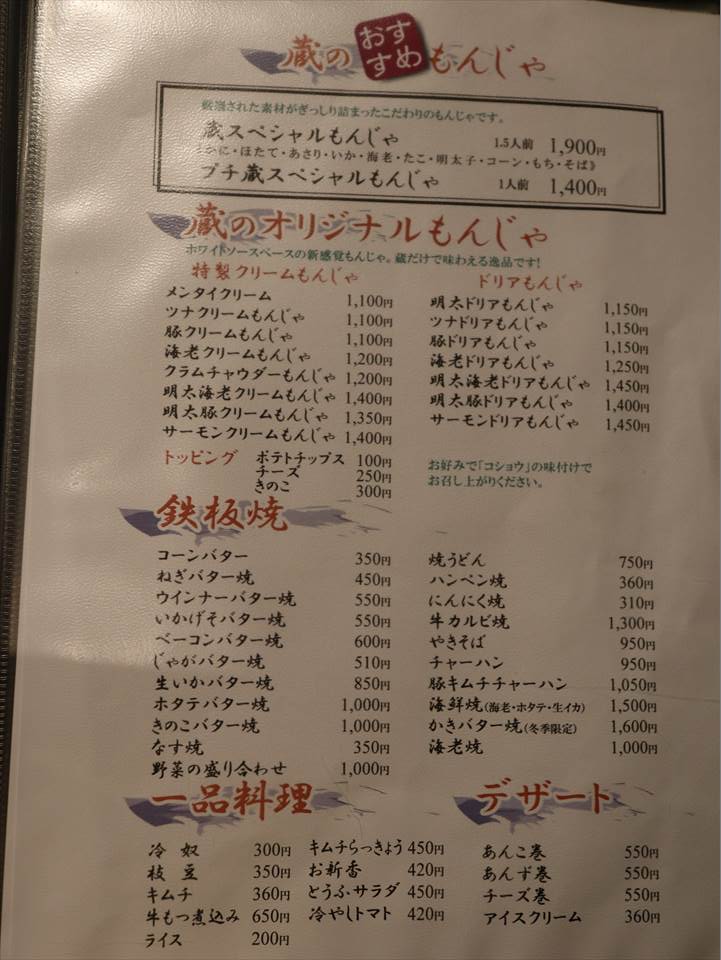 蔵の おすすめ もんじゃ
厳選された素材がぎっしり詰まったこだわりのもんじゃです。
蔵スペシャルもんじゃ 1.5人前 1,900円
かに・ほたて・あさり・いか・海老・たこ・明太子・コーン・もち・そば》
プチ蔵スペシャルもんじゃ 1人前 1,400円
蔵のオリジナルもんじゃ
ホワイトソースベースの新感覚もんじゃ。蔵だけで味わえる逸品です!
特製クリームもんじゃ
メンタイクリーム 1,100円
ツナクリームもんじゃ 1,100円
豚クリームもんじゃ 1,100円
海老クリームもんじゃ 1,200円
クラムチャウダーもんじゃ 1,200円
明太海老クリームもんじゃ 1,400円
明太豚クリームもんじゃ 1,350円
サーモンクリームもんじゃ 1,400円
トッピング ポテトチップス 100円
チーズ 250円
きのこ 300円
ドリアもんじゃ
明太ドリアもんじゃ 1,150円
ツナドリアもんじゃ 1,150円
豚ドリアもんじゃ 1,150円
海老ドリアもんじゃ 1,250円
明太海老ドリアもんじゃ 1,450円
明太豚ドリアもんじゃ 1,400円
サーモンドリアもんじゃ 1,450円
お好みで「コショウ」の味付けで
お召し上がりください。
鉄板焼
コーンバター 350円
ねぎバター焼 450円
ウインナーバター焼 550円
いかげそバター焼 550円
ベーコンバター焼 600円
じゃがバター焼 510円
生いかバター焼 850円
ホタテバター焼 1,000円
きのこバター焼 1,000円
なす焼 350円
野菜の盛り合わせ 1,000円
焼うどん 750円
ハンペン焼 360円
にんにく焼 310円
牛カルビ焼 1,300円
やきそば 950円
チャーハン 950円
豚キムチチャーハン 1,050円
海鮮焼(海老・ホタテ・生イカ) 1,500円
かきバター焼(冬季限定) 1,600円
海老焼 1,000円
一品料理
冷奴 300円
枝豆 350円
キムチ 360円
牛もつ煮込み 650円
ライス 200円
キムチらっきょう 450円
お新香 420円
とうふサラダ 450円
冷やしトマト 420円
デザート
あんこ巻 550円
あんず巻 550円
チーズ巻 550円
アイスクリーム 360円